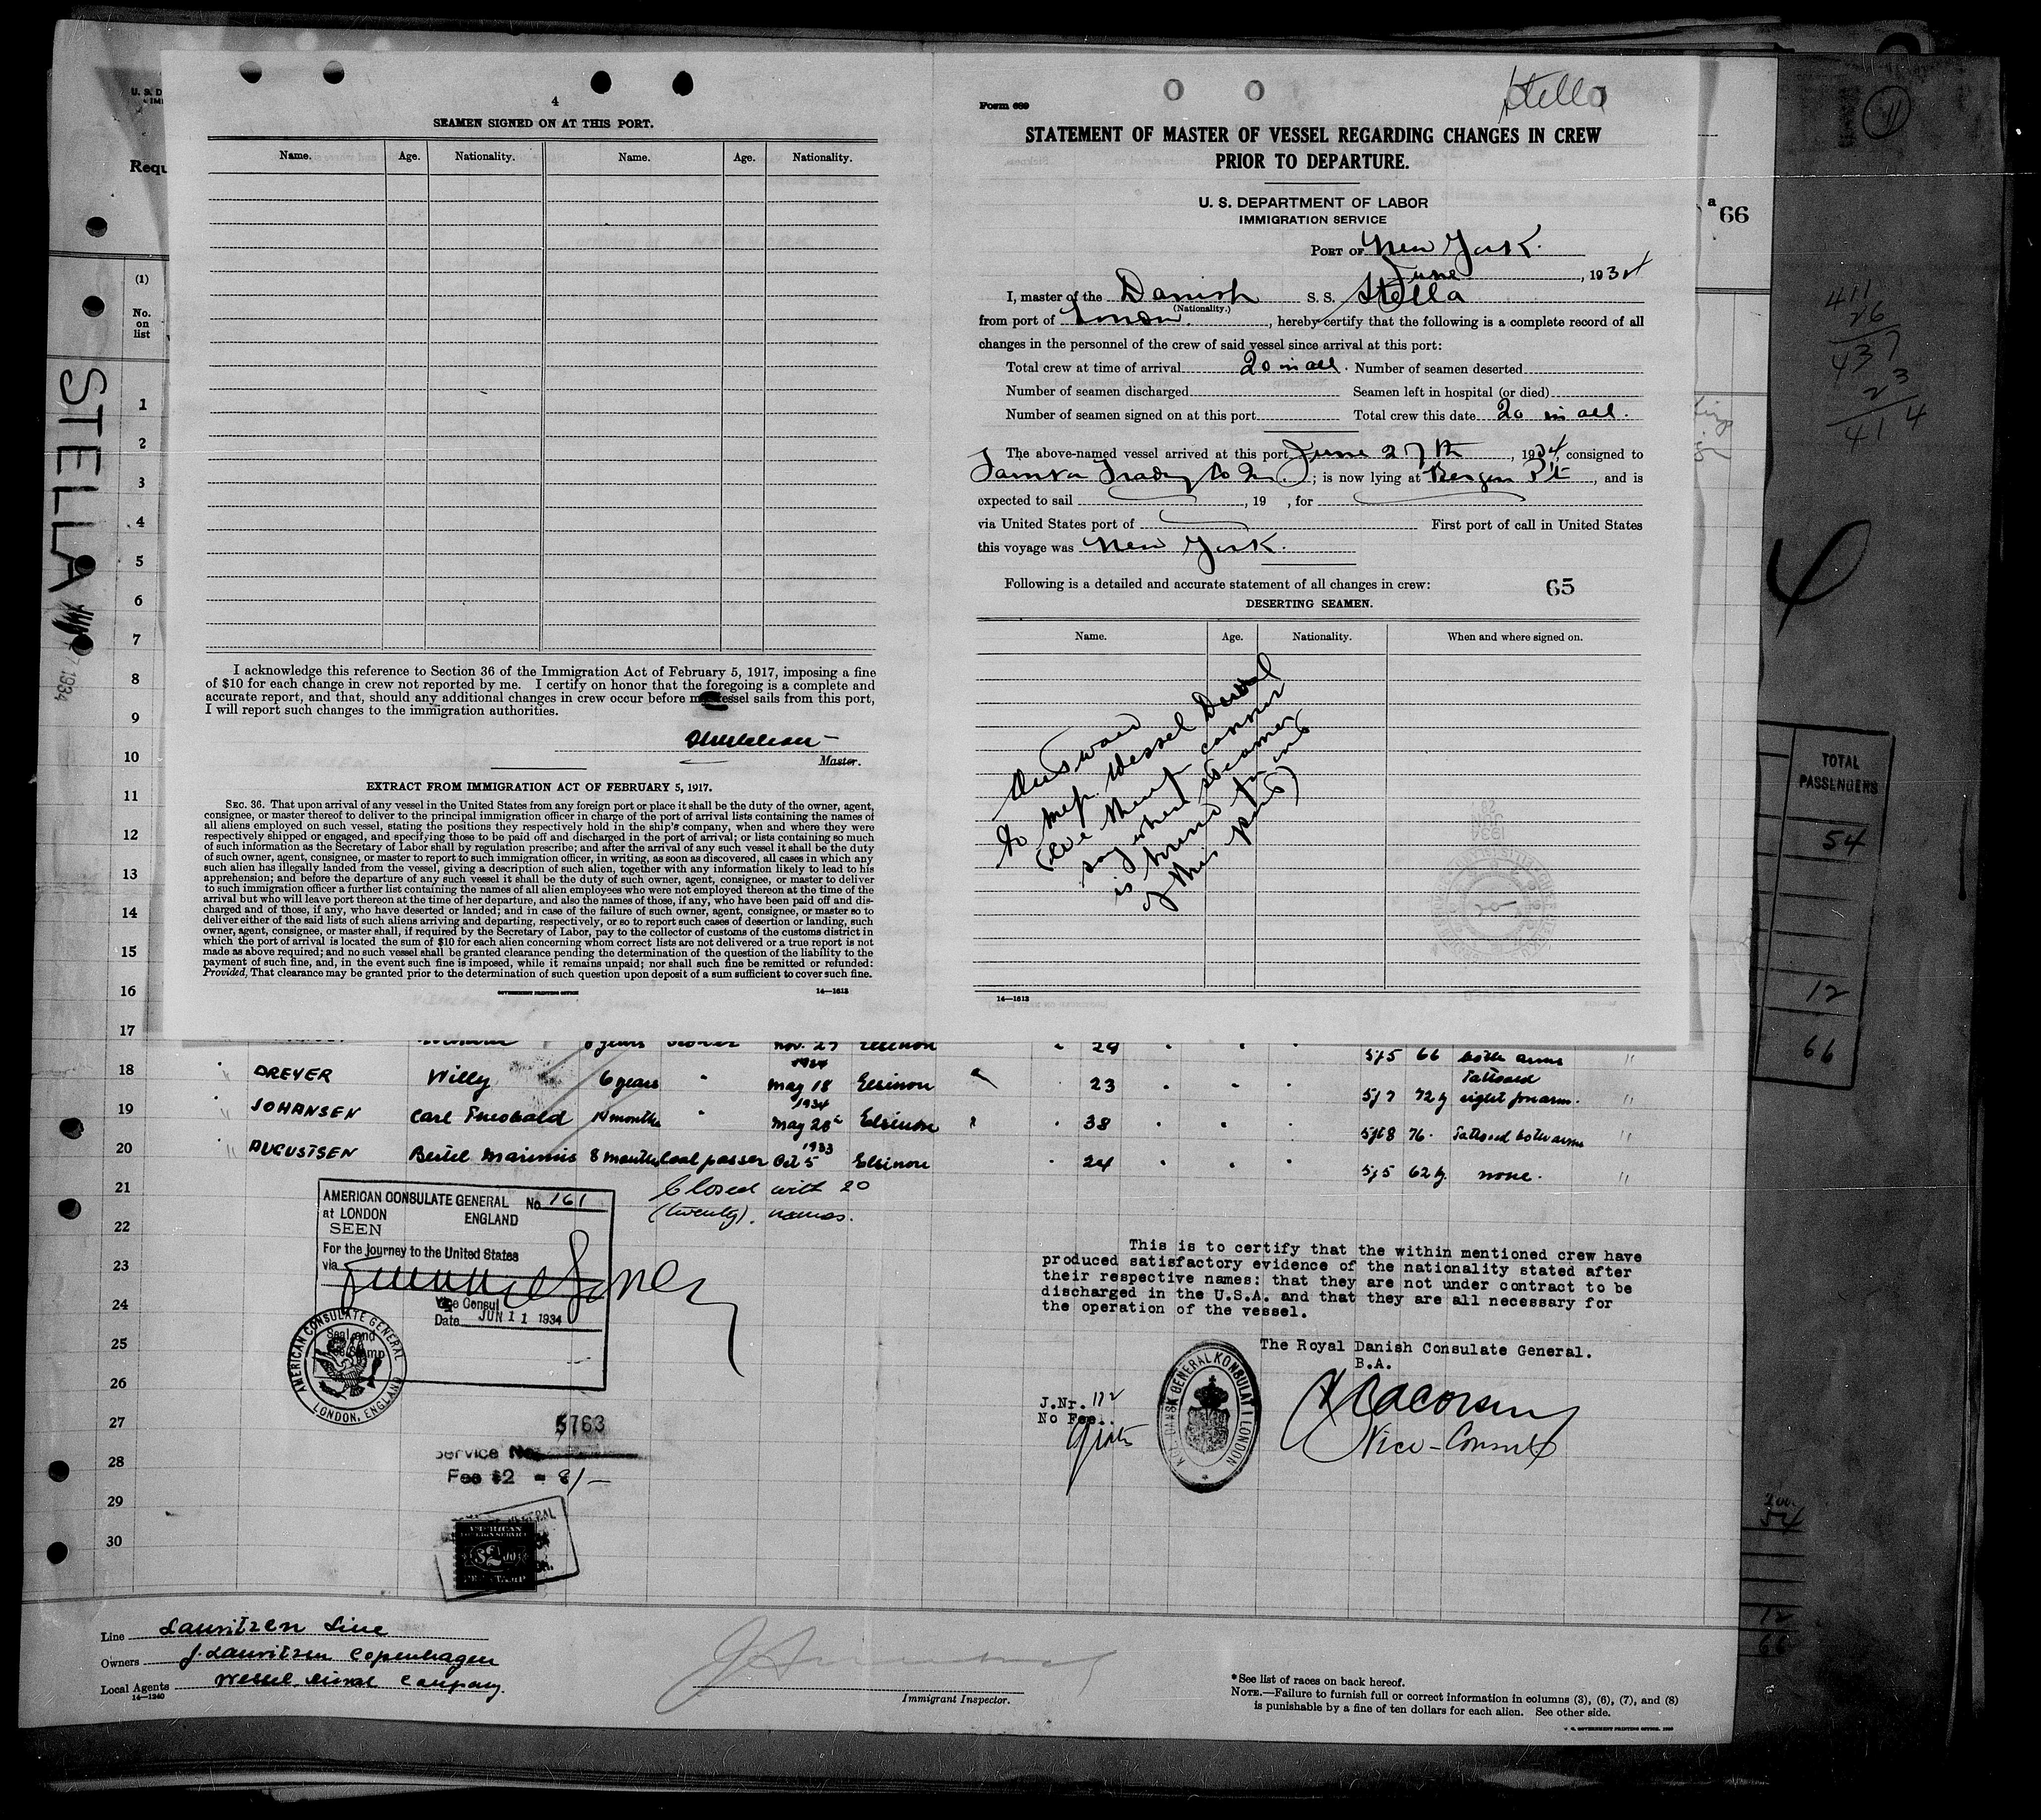 4
SEAMEN SIGNED ON AT THIS PORT.
Name. Age. Nationality. Name. Age. Nationality.
I acknowledge this reference to Section 36 of the Immigration Act of February 5, 1917, imposing a fine
of $10 for each change in crew not reported by me. I certify on honor that the foregoing is a complete and
accurate report, and that, should any additional changes in crew occur before my vessel sails from this port,
I will report such changes to the immigration authorities.
Master.
EXTRACT FROM IMMIGRATION ACT OF FEBRUARY 5, 1917.
SEC. 36. That upon arrival of any vessel in the United States from any foreign port or place it shall be the duty of the owner, agent,
consignee, or master thereof to deliver to the principal immigration officer in charge of the port of arrival lists containing the names of
all aliens employed on such vessel, stating the positions they respectively hold in the ship's company, when and where they were
respectively shipped or engaged, and specifying those to be paid off and discharged in the port of arrival; or lists containing so much
of such information as the Secretary of Labor shall by regulation prescribe; and after the arrival of any such vessel it shall be the duty
of such owner, agent, consignee, or master to report to such immigration officer, in writing, as soon as discovered, all cases in which any
such alien has illegally landed from the vessel, giving a description of such alien, together with any information likely to lead to his
apprehension; and before the departure of any such vessel it shall be the duty of such owner, agent, consignee, or master to deliver
to such immigration officer a further list containing the names of all alien employees who were not employed thereon at the time of the
arrival but who will leave port thereon at the time of her departure, and also the names of those, if any, who have been paid off and dis-
charged and of those, if any, who have deserted or landed; and in case of the failure of such owner, agent, consignee, or master so to
deliver either of the said lists of such aliens arriving and departing, respectively, or so to report such cases of desertion or landing, such
owner, agent, consignee, or master shall, if required by the Secretary of Labor, pay to the collector of customs of the customs district in
which the port of arrival is located the sum of $10 for each alien concerning whom correct lists are not delivered or a true report is not
made as above required; and no such vessel shall be granted clearance pending the determination of the question of the liability to the
payment of such fine, and, in the event such fine is imposed, while it remains unpaid; nor shall such fine be remitted or refunded:
Provided, That clearance may be granted prior to the determination of such question upon deposit of a sum sufficient to cover such fine.
GOVERNMENT PRINTING OFFICE 14—1613
Form 689
Stella
STATEMENT OF MASTER OF VESSEL REGARDING CHANGES IN CREW
PRIOR TO DEPARTURE.
U. S. DEPARTMENT OF LABOR
IMMIGRATION SERVICE
PORT OF New York.
June, 1934
I, master of the Danish S. S. Stella
(Nationality.)
from port of London., hereby certify that the following is a complete record of all
changes in the personnel of the crew of said vessel since arrival at this port:
Total crew at time of arrival 20 in all. Number of seamen deserted
Number of seamen discharged Seamen left in hospital (or died)
Number of seamen signed on at this port Total crew this date 20 in all.
The above-named vessel arrived at this port June 27th, 1934, consigned to
Trading Co ; is now lying at Bergen Pt, and is
expected to sail , 19 , for
via United States port of First port of call in United States
this voyage was New York.
Following is a detailed and accurate statement of all changes in crew: 65
DESERTING SEAMEN.
Name. Age. Nationality. When and where signed on.
Answered
to Wessel Duval
(we cannot
say where steamer
is bound
of this port)
14—1613
Requ
a 66
(1)
No.
on
list
STELLA
1934
1
2
3
4
5
6
7
8
9
10
11
12
13
14
15
16
17 years Nov. 29 Elsinore 29 5f5 66 both arms
18 DREYER Willy 6 years " 1934 May 18 Elsinore 23 5f7 72 Tattooed right forearm.
19 JOHANSEN Carl Theobald 14 months " 1934 May 28 Elsinore 38 5f8 76. Tattooed both arms
20 AUGUSTSEN 8 months coal passer 1933 Oct 5 Elsinore 24 5f5 62 none.
21 Closed with 20
22 (twenty). names.
23
24
25
26
27
28
29
30
AMERICAN CONSULATE GENERAL No. 161
at LONDON ENGLAND
SEEN
For the journey to the United States
via
Vice Consul
Date JUN 11 1934
Seal and
Stamp
AMERICAN CONSULATE GENERAL
LONDON, ENGLAND
5763
Service No.
Fee $2 = 8/-
AMERICAN
FOREIGN SERVICE
FEE STAMP
This is to certify that the within mentioned crew have
produced satisfactory evidence of the nationality stated after
their respective names: that they are not under contract to be
discharged in the U.S.A. and that they are all necessary for
the operation of the vessel.
The Royal Danish Consulate General.
B.A.
J.Nr. 112
No Fee.
gratis
KGL. DANSK GENERALKONSULAT I LONDON
Vice-Consul
Line Lauritzen Line
Owners J. Lauritzen Copenhagen
Local Agents Wessel Duval Company.
14—1240
Immigrant Inspector.
*See list of races on back hereof.
NOTE.—Failure to furnish full or correct information in columns (3), (6), (7), and (8)
is punishable by a fine of ten dollars for each alien. See other side.
U. S. GOVERNMENT PRINTING OFFICE
11
411
26
437
23
414
TOTAL
PASSENGERS
54
12
66
54
12
66